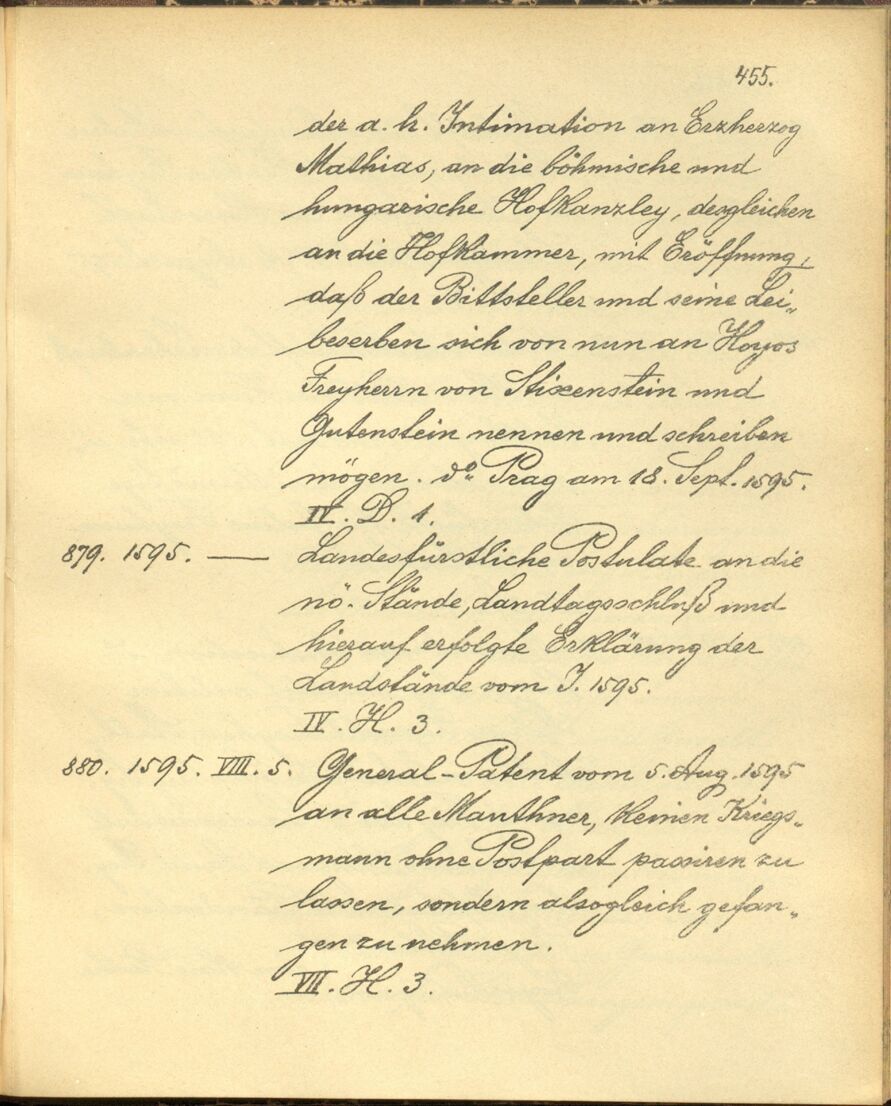 455.
der a. h. Intimation an Erzherzog
Mathias, an die böhmische und
hungarische Hofkanzley, desgleichen
an die Hofkammer, mit Eröffnung,
daß der Bittsteller und seine Lei„
beserben sich von nun an Hoyos
Freyherrn von Stixenstein und
Gutenstein nennen und schreiben
mögen. dº Prag am 18. Sept. 1595.
IV. D. 1.
879. 1595. — Landesfürstliche Postulate an die
nö. Stände, Landtagsschluß und
hierauf erfolgte Erklärung der
Landstände vom J. 1595.
IV. H. 3.
880. 1595. VIII. 5. General-Patent vom 5. Aug. 1595
an alle Mauthner, keinen Kriegs„
mann ohne Postpart passiren zu
lassen, sondern alsogleich gefan„
gen zu nehmen.
VII. H. 3.